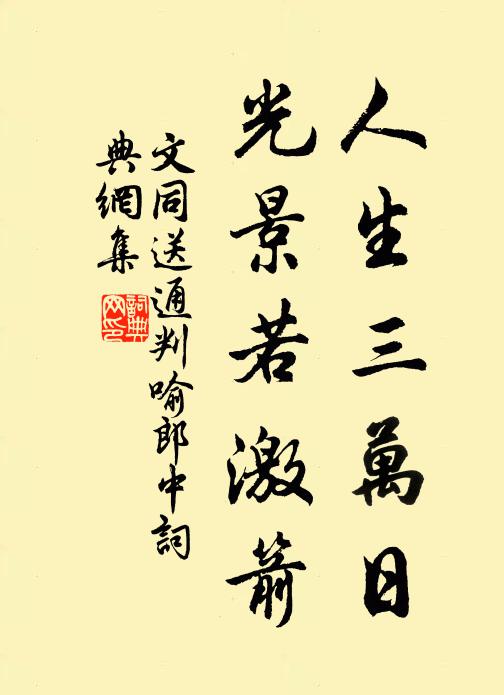 人生三萬日
光景若激箭
文同送通判喻郎中詞
典網集
詞典網印